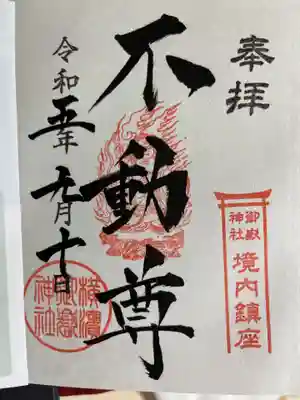 奉拝
御嶽神社
境内鎮座
不動尊
令和五年
九月十日
横濱
御嶽
神社